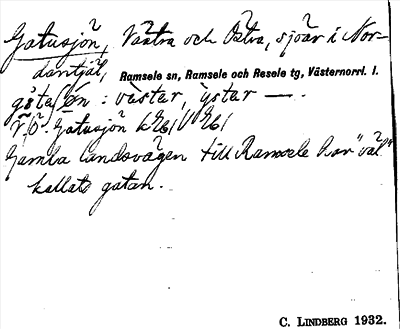 Gatusjön, Västra och Östra, sjöar i Nor-
dantjäl, Ramsele sn, Ramsele och Resele tg, Västernorrl. l.
: vèster, ỳster —.
V, Ö Gatusjön
Gamla landsvägen till Ramsele har "väl"
kallats gatan.
C. LINDBERG 1932.